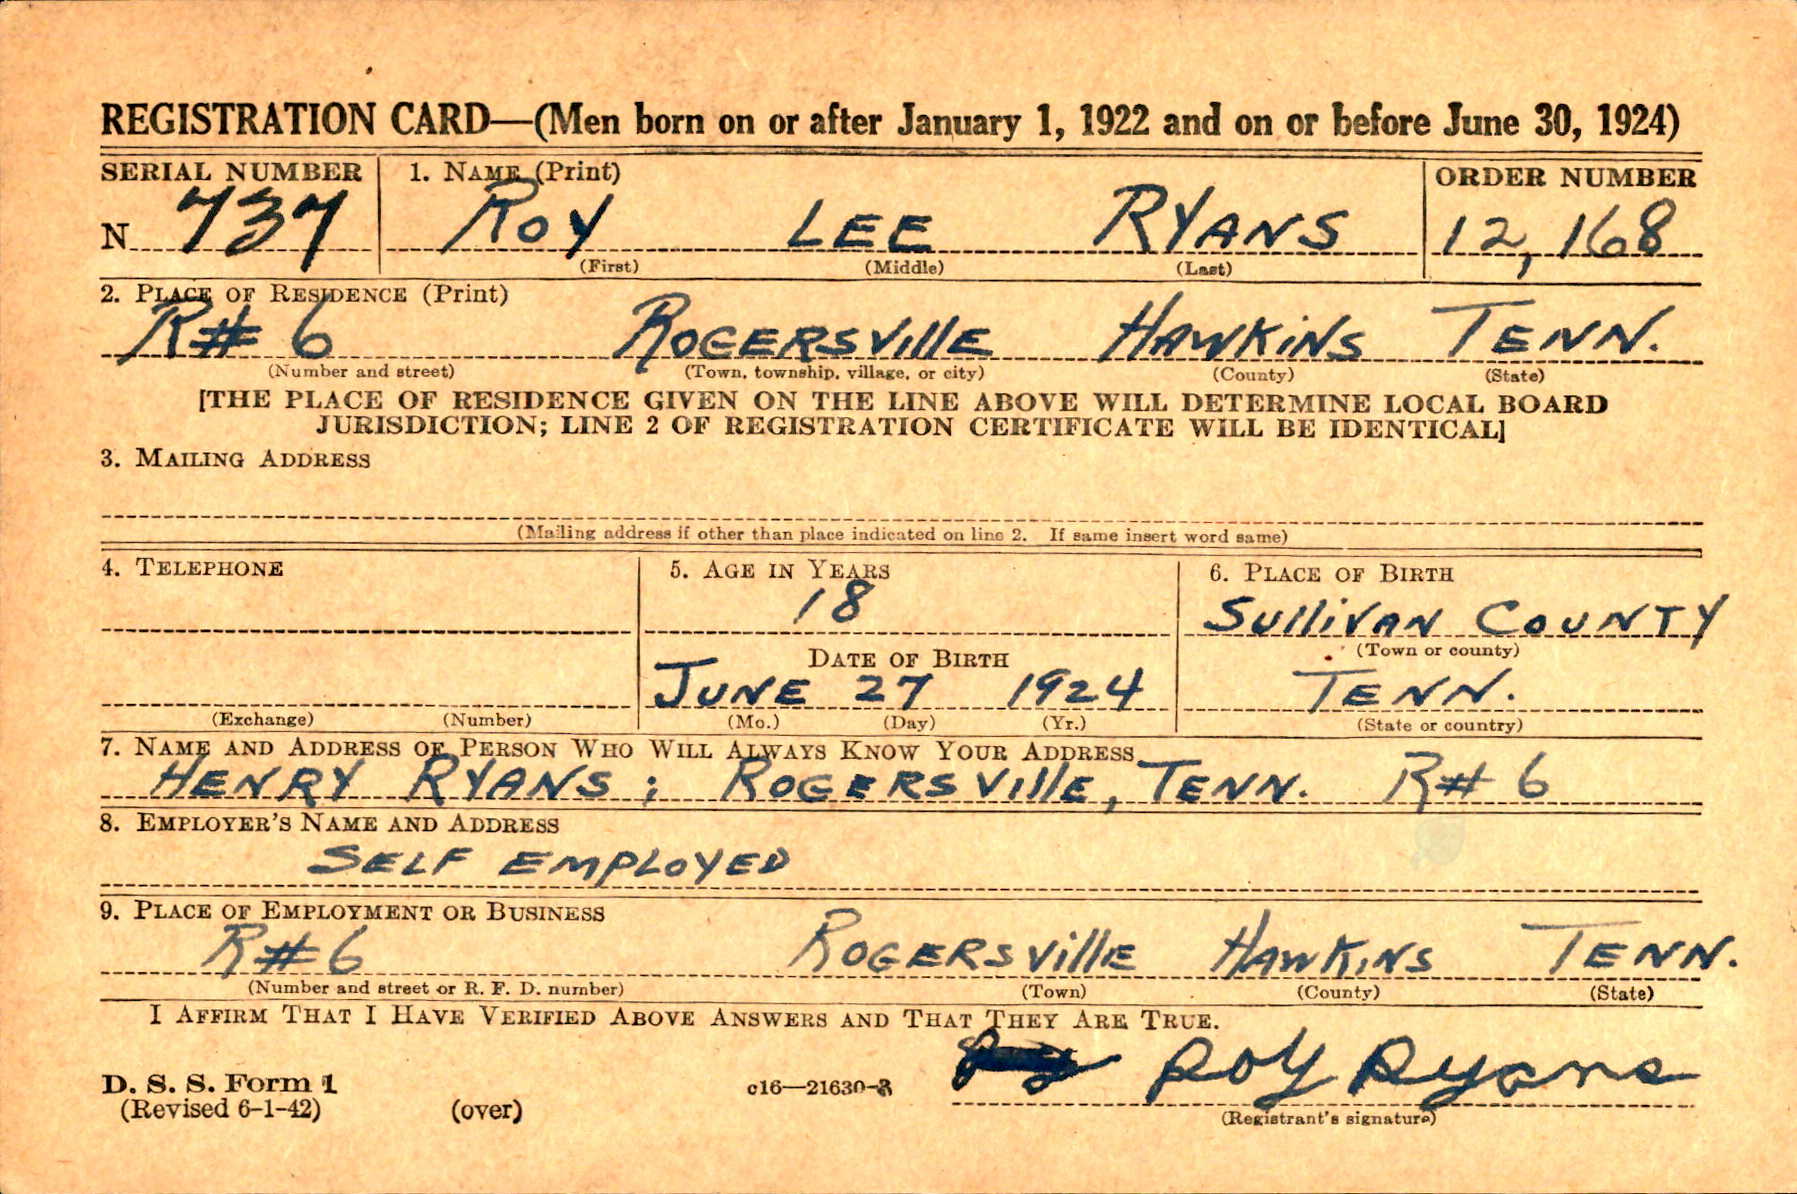 REGISTRATION CARD—(Men born on or after January 1, 1922 and on or before June 30, 1924)
SERIAL NUMBER 1. NAME (Print) ORDER NUMBER
N 737 ROY LEE RYANS 12,168
(First) (Middle) (Last)
2. PLACE OF RESIDENCE (Print)
R# 6 ROGERSVIllE HAWKINS TENN.
(Number and street) (Town, township, village, or city) (County) (State)
[THE PLACE OF RESIDENCE GIVEN ON THE LINE ABOVE WILL DETERMINE LOCAL BOARD
JURISDICTION; LINE 2 OF REGISTRATION CERTIFICATE WILL BE IDENTICAL]
3. MAILING ADDRESS
(Mailing address if other than place indicated on line 2. If same insert word same)
4. TELEPHONE 5. AGE IN YEARS 6. PLACE OF BIRTH
18 SUllIVAN COUNTY
(Town or county)
DATE OF BIRTH
JUNE 27 1924 TENN.
(Exchange) (Number) (Mo.) (Day) (Yr.) (State or country)
7. NAME AND ADDRESS OF PERSON WHO WILL ALWAYS KNOW YOUR ADDRESS
HENRY RYANS; ROGERSVIllE, TENN. R# 6
8. EMPLOYER'S NAME AND ADDRESS
SELF EMPLOYED
9. PLACE OF EMPLOYMENT OR BUSINESS
R#6 ROGERSVIllE HAWKINS TENN.
(Number and street or R. F. D. number) (Town) (County) (State)
I AFFIRM THAT I HAVE VERIFIED ABOVE ANSWERS AND THAT THEY ARE TRUE.
Roy Ryans
D. S. S. Form 1 c16—21630-3
(Revised 6-1-42) (over) (Registrant's signature)